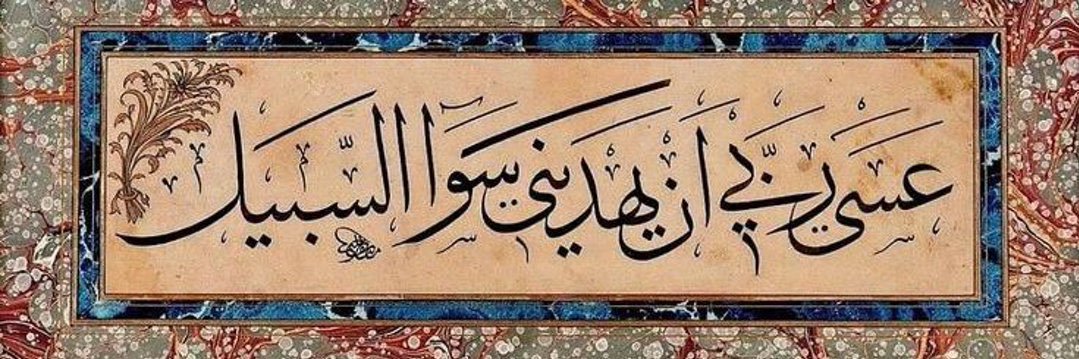 عَسٰى رَبّٖي اَنْ يَهْدِيَنٖي سَوَٓاءَ السَّبٖيلِ